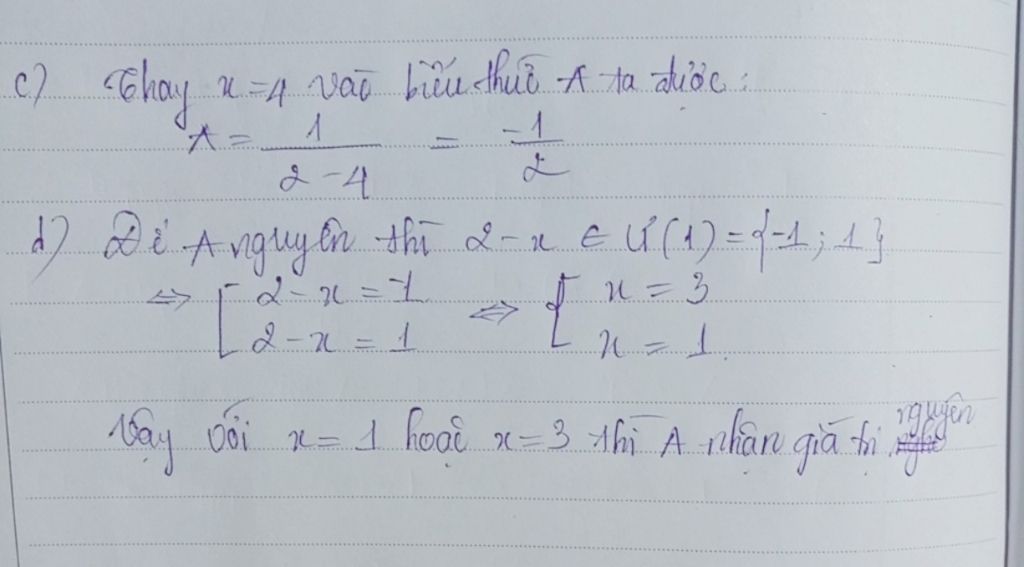 c) Thay x = 4 vào biểu thức A ta được:
A = 1/(2 - 4) = -1/2
d) Để A nguyên thì 2 - x ∈ Ư(1) = {-1; 1}
⇔ [ 2 - x = -1 ⇔ [ x = 3
2 - x = 1 x = 1.
Vậy với x = 1 hoặc x = 3 thì A nhận giá trị nguyên